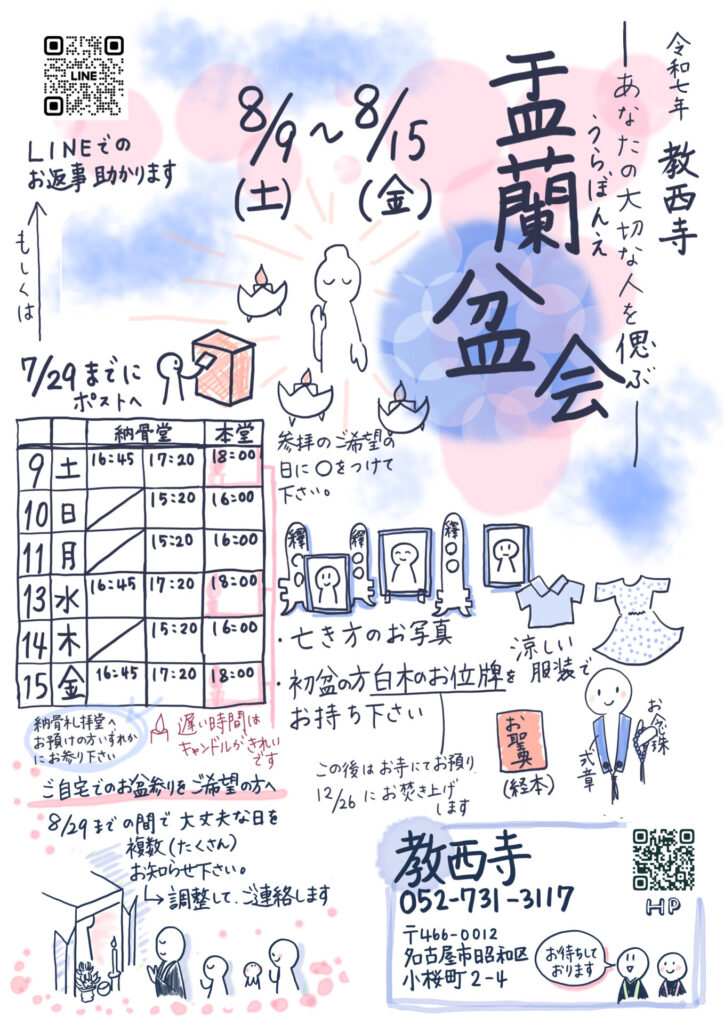 令和七年 教西寺
―あなたの大切な人を偲ぶ―
うらぼんえ
盂蘭盆会
8/9~8/15
(土) (金)
LINE
LINEでの
お返事助かります
もしくは
7/29までに
ポストへ
参拝のご希望の
日に○をつけて
下さい。
納骨堂 本堂
9 土 16:45 17:20 18:00
10 日 15:20 16:00
11 月 15:20 16:00
13 水 16:45 17:20 18:00
14 木 15:20 16:00
15 金 16:45 17:20 18:00
納骨礼拝堂へ
お預けの方いずれか
にお参り下さい
遅い時間は
キャンドルがきれい
です
釋○○
釋○○
釋○○
・亡き方のお写真
・初盆の方白木のお位牌を
お持ち下さい
この後はお寺にてお預り
12/26にお焚き上げ
します
涼しい
服装で
お念珠
式章
お聖典
(経本)
ご自宅でのお盆参りをご希望の方へ
8/29までの間で大丈夫な日を
複数(たくさん)
お知らせ下さい。
↳調整して、ご連絡します
教西寺
052-731-3117
〒466-0012
名古屋市昭和区
小桜町2-4
HP
お待ちして
おります